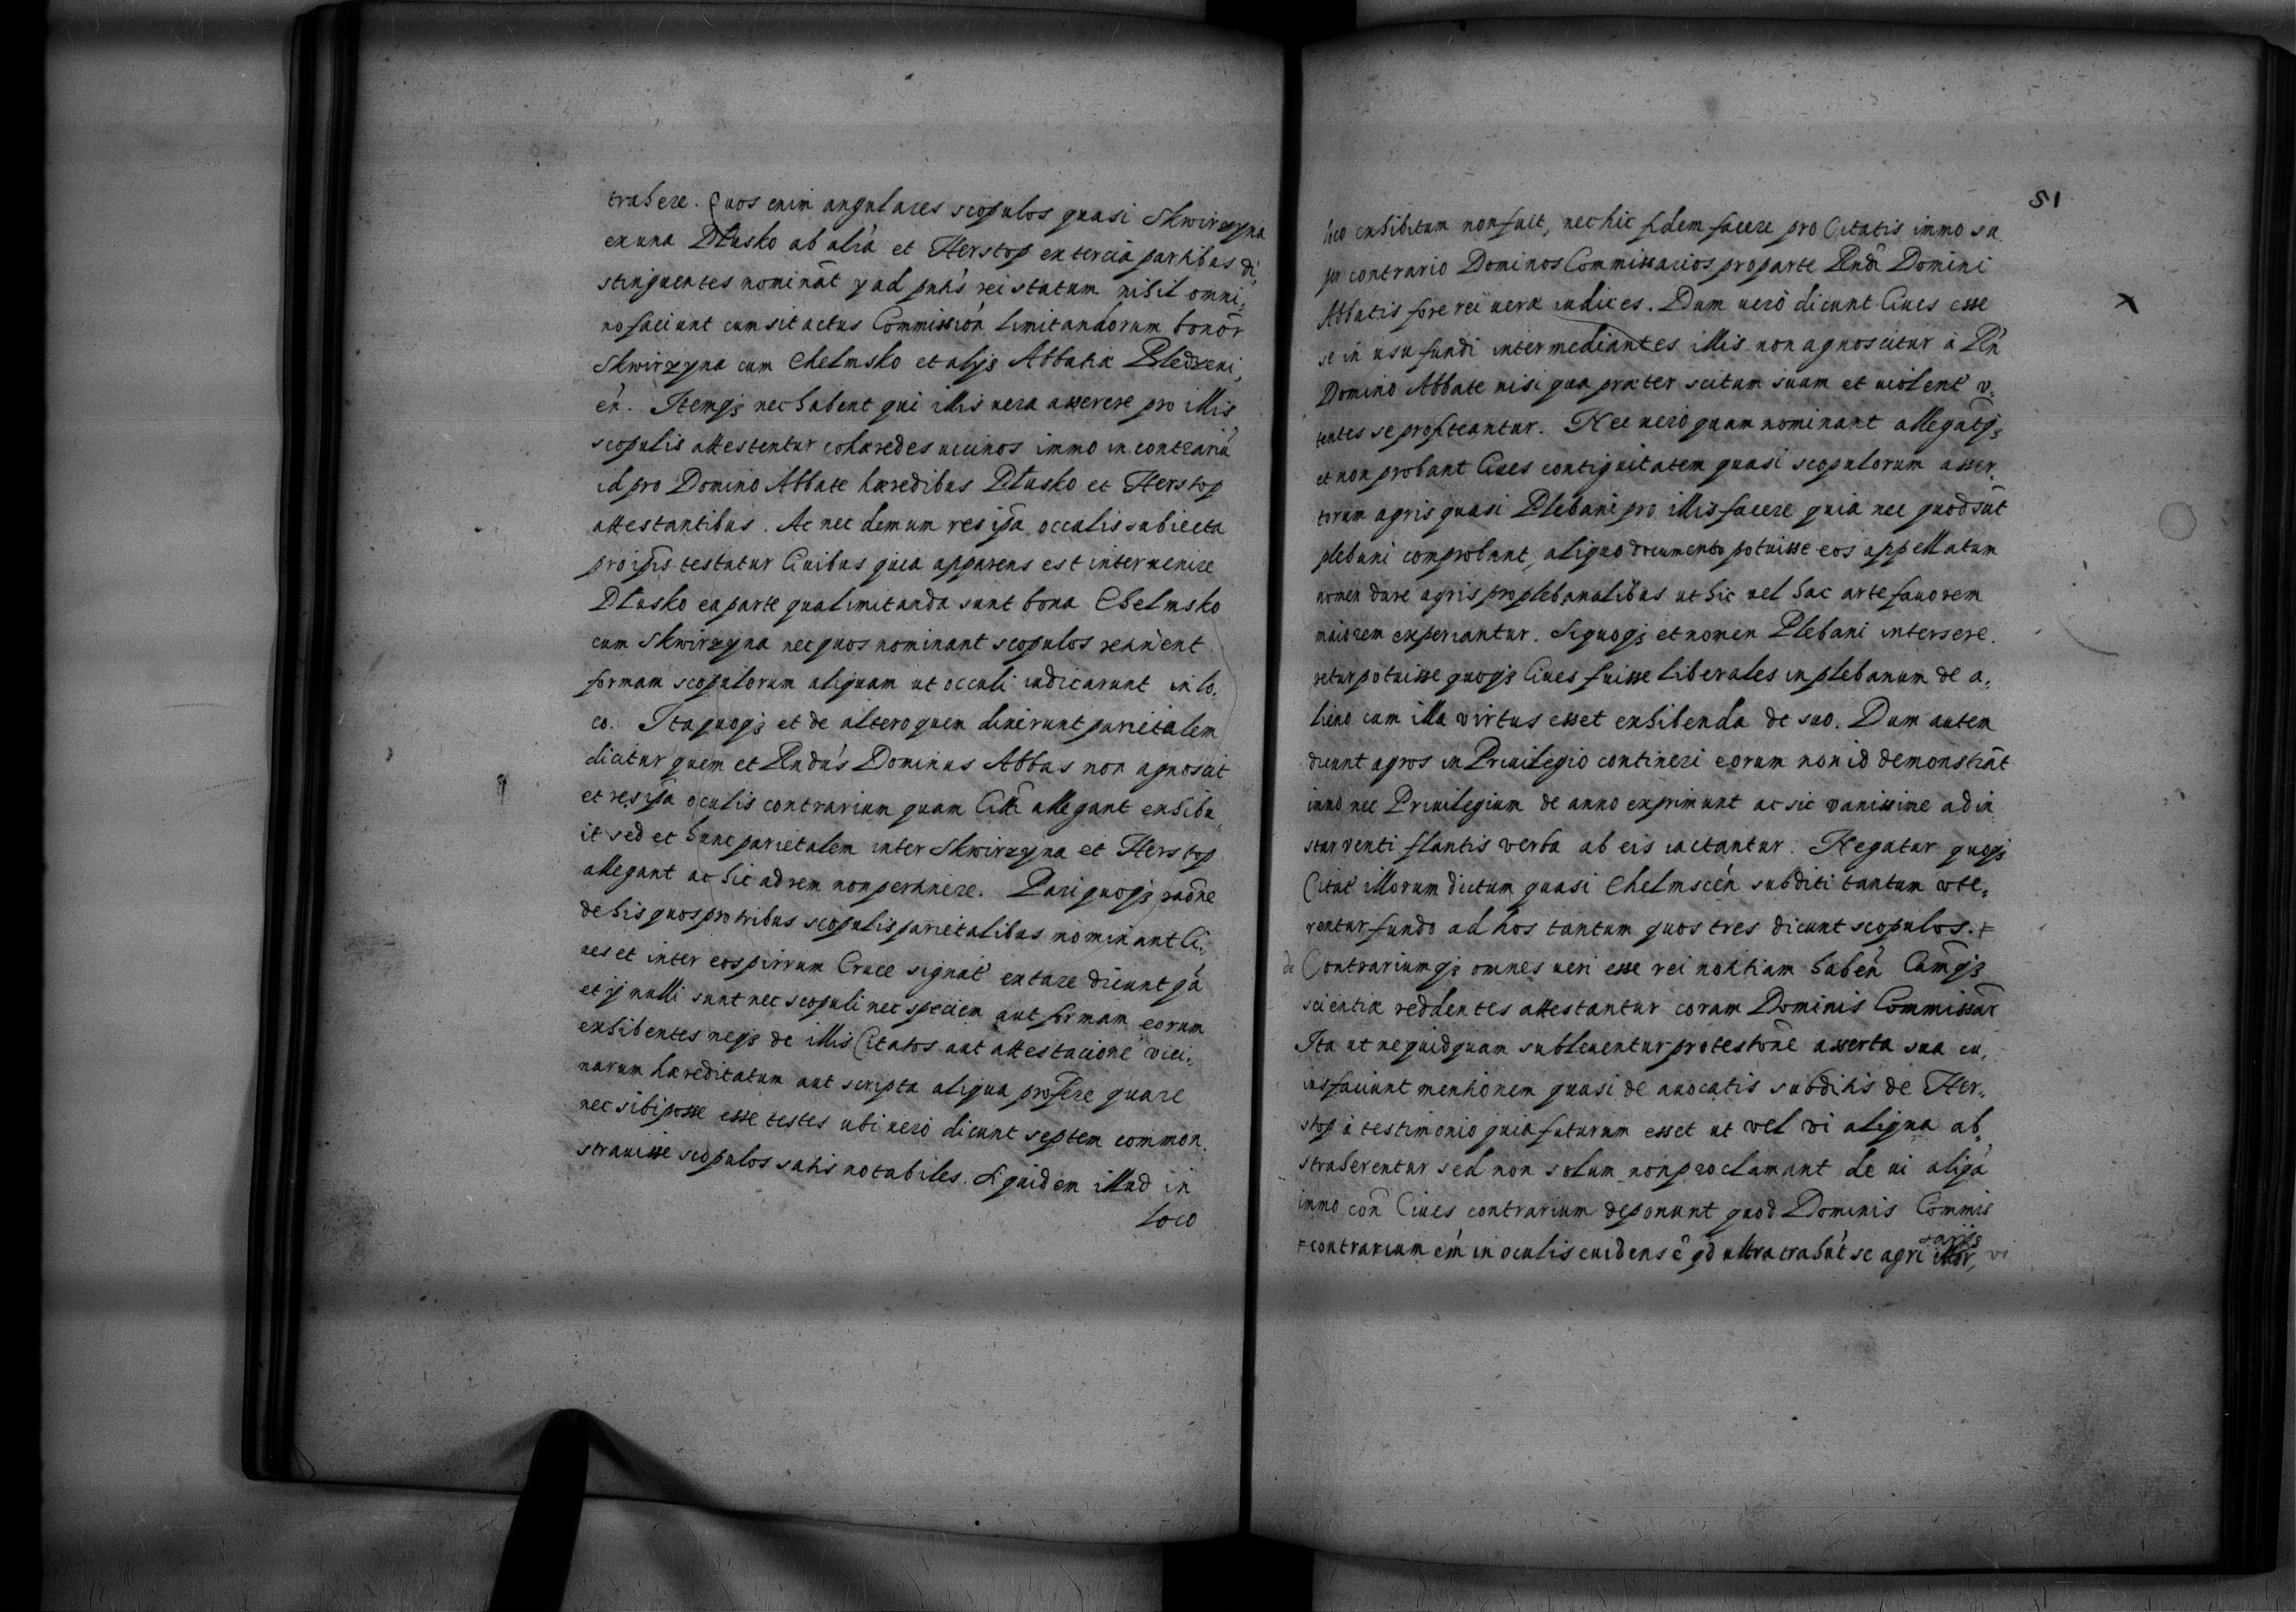 trahere. Quos enim angulares scopulos quasi Skwirzyna
ex una Dłusko ab alia et Herstop ex tercia partibus di,
stinguentes nominãt y ad pñtis rei statum nihil omni,
no faciunt cum sit actus Commission limitandorum bonor
Skwirzyna cum Chelmsko et alijs Abbatiæ Bledzeui,
eñ. Itemqз nec habent qui illis uera asserere pro illis
scopulis attestentur cohæredes uicinos immo in contrariũ
id pro Domino Abbate hæredibus Dłusko et Herstop
attestantibus. Ac nec demum res ipsa occulis subiecta
pro ipsis testatur Ciuibus quia apparens est interuenire
Dłusko ea parte qua limitanda sunt bona Chelmsko
cum Skwirzyna nec quos nominant scopulos retinent
formam scopulorum aliquam ut occuli iudicarunt in lo,
co. Ita quoqз et de altero quem dixerunt parietalem
dicitur quem et Rndus Dominus Abbas non agnoscit
et res ipsa oculis contrarium quam Citti allegant exhibu,
it sed et hunc parietalem inter Skwirzyna et Herstop
allegant ac hic ad rem non pertinere. Pari quoqз raõne
de his quos pro tribus scopulis parietalibus nominant Ci,
ues et inter eos pirrum Cruce signat extare dicunt qá
et ij nulli sunt nec scopuli nec speciem aut formam eorum
exhibentes neqз de illis Citatos aut attestacione vici,
narum hæreditatum aut scripta aliqua proferre quare
nec sibi posse esse testes ubi uero dicunt septem common,
strauisse scopulos satis notabiles. Siquidem illud in
loco
51
loco exhibitum non fuit, nec hic fidem facere pro Citatis immo su
per contrario Dominos Commissarios pro parte Rndi Domini
Abbatis fore rei ueræ iudices. Dum uerò dicunt Ciues esse
se in usu fundi intermediantes illis non agnoscitur à Rñ
Domino Abbate nisi qua præter scitum suum et uiolent v,
tentes se profiteantur. Nec uerò quam nominant allegãtqз
et non probant Ciues contiguitatem quasi scopulorum asser,
torum agris quasi Plebani pro illis facere quia nec quod sũt
plebani comprobant, aliquo documento potuisse eos appellatum
nomen dare agris pro plebanalibus ut hic uel hac arte fauorem
maiorem experiantur. Siquoqз et nomen Plebani intersere,
retur potuisse quoqз Ciues fuisse liberales in plebanum de a,
lieno cum illa virtus esset exhibenda de suo. Dum autem
dicunt agros in Priuilegio contineri eorum non id demonstrãt
immo nec Priuilegium de anno exprimunt ac sic vanissime ad in
star venti flantis verba ab eis iactantur. Negatur quoqз
Citat illorum dictum quasi Chelmscen subditi tantum vte,
rentur fundo ad hos tantum quos tres dicunt scopulos. +
de Contrariumqз omnes ueri esse rei notitiam haben Cãmqз
scientiæ reddentes attestantur coram Dominis Commissar
Ita ut nequidquam subleuentur protestõne asserta sua cu,
ius faciunt mentionem quasi de auocatis subditis de Her,
stop à testimonio quia futurum esset ut vel vi aliqua ab,
straherentur sed non solum non proclamant de ui aliqá
immo coñ Ciues contrarium deponunt quod Dominis Commis
sarijs
+ contrarium em in oculis euidens ẽ qd ultra trahũt se agri illor, vi